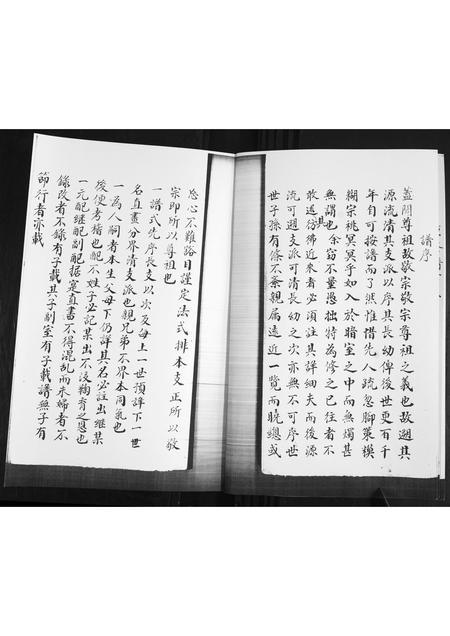 譜序
蓋聞尊祖故敬宗敬宗尊祖之義也故遡其
源流清其支派以序其長幼俾後世更百千
年自可按譜而了然惟惜先人疏忽腳策模
糊宗祧冥冥乎如入於暗室之中而無燭甚
無謂也余窃不量愚拙特為修之已往者不
敢追彷彿近來者必須註其詳細夫而後源
流可遡支派可清長幼之次亦無不可序世
世子孫有條不紊親属遠近一覽而曉總或
其
忿心不難路目謹定法式排本支正所以敬
宗即所以尊祖也
一譜式先序長支以次及每上一世預詳下一世
名直畫分界清支派也親兄弟不界本同氣也
一為人嗣者本生父母下仍詳其名必註出繼某
後便考稽也配不姓子必記某出不没鞠育之恩也
一元配継配副配据寔直書不得混乱而来婦者不
錄改者不錄有子載其子副室有子載譜無子有
節行者亦載